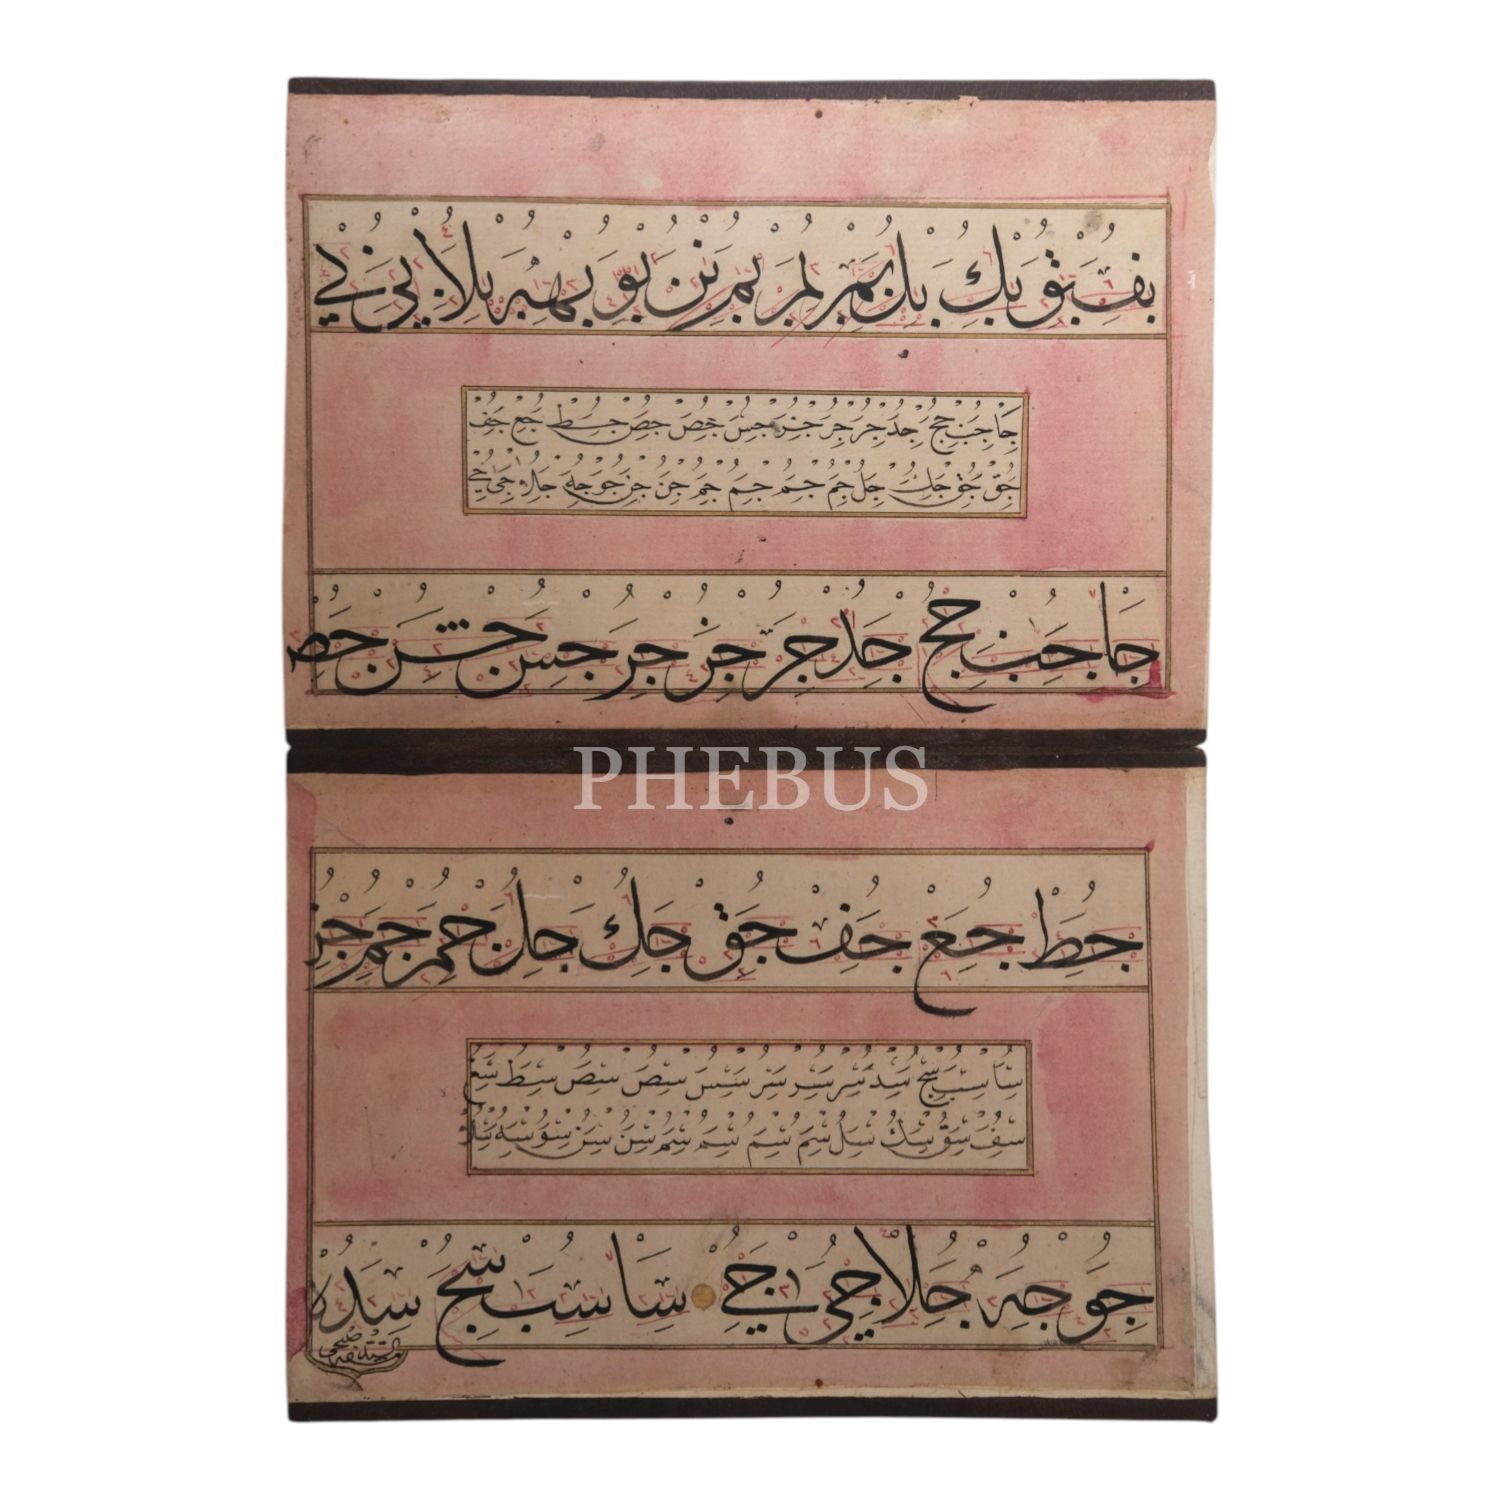 بف بق بك بل بم بر لمر بم بن بو بهبه بلا بى بي
جا جب جج جد جر جز جس جص جص جط جع جف
جق جق جك جل جم جم جم جم جن جن جو جه جلا جى جي
جا جب جج جد جر جز جر جس جش جص
PHEBUS
جط جع جف جق جك جل جم جم جن
سا سب سج سد سر سر سر سس سص سص سط سع
سف سق سك سل سم سم سم سم سن سن سو سه سلا
جو جه جلا جى جي سا سب سج سد